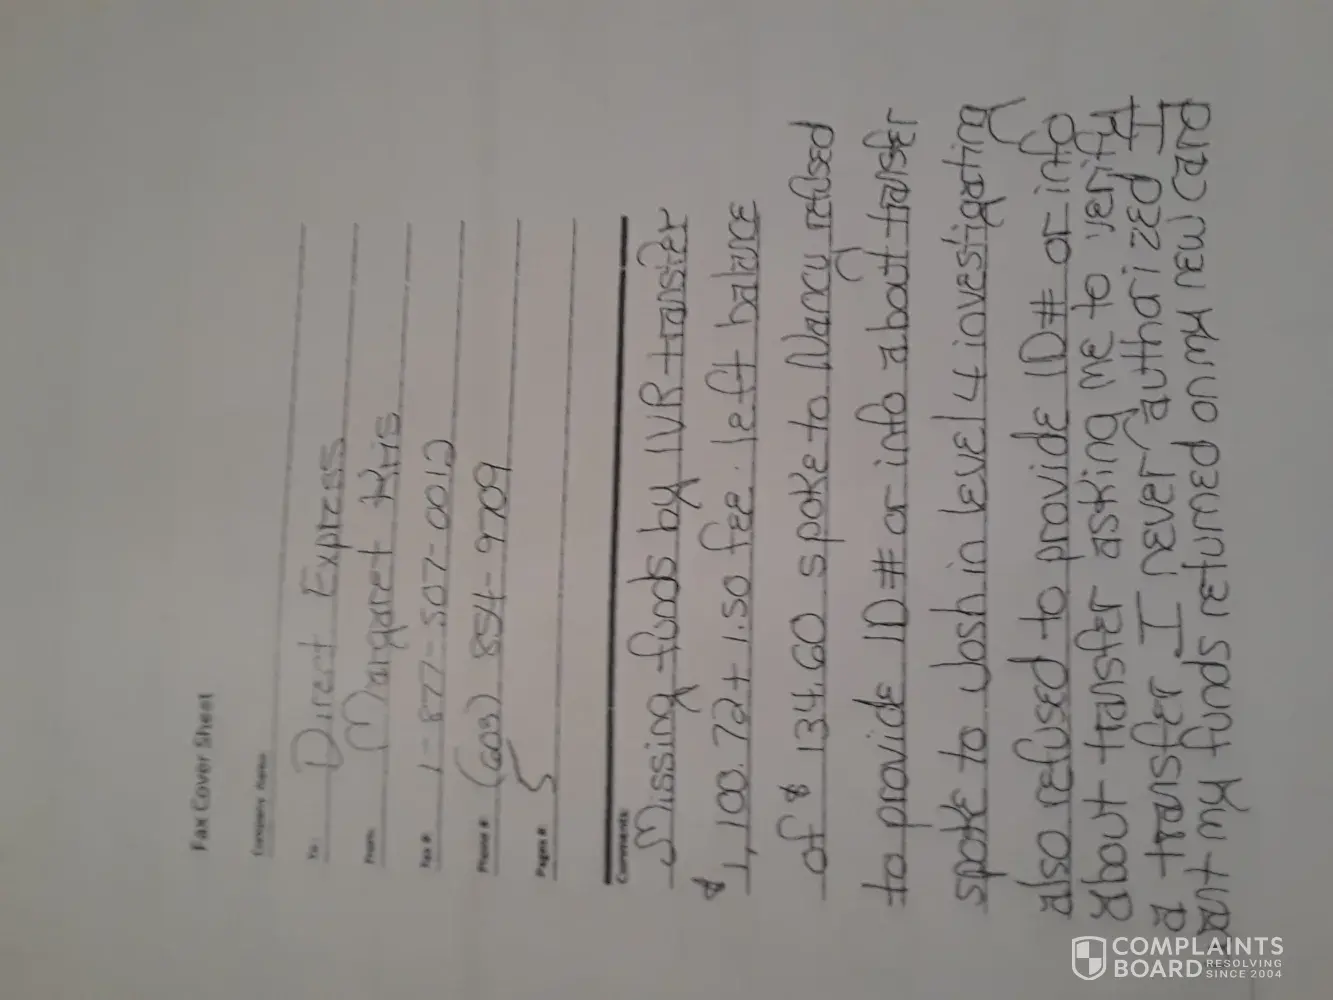 Fax Cover Sheet
Company Name:
To: Direct Express
From: Margaret Kris
Fax #: 1-877-507-0012
Phone #: (603) 854-9709
Pages #: 5
Comments:
Missing funds by IVR transfer
$1,100.72 + 1.50 fee. left balance
of $134.60 spoke to Nancy refused
to provide ID# or info about transfer
spoke to Josh in level 4 investigating
also refused to provide ID# or info
about transfer asking me to verify
a transfer I never authorized I
want my funds returned on my new card
COMPLAINTS
BOARD RESOLVING
SINCE 2004